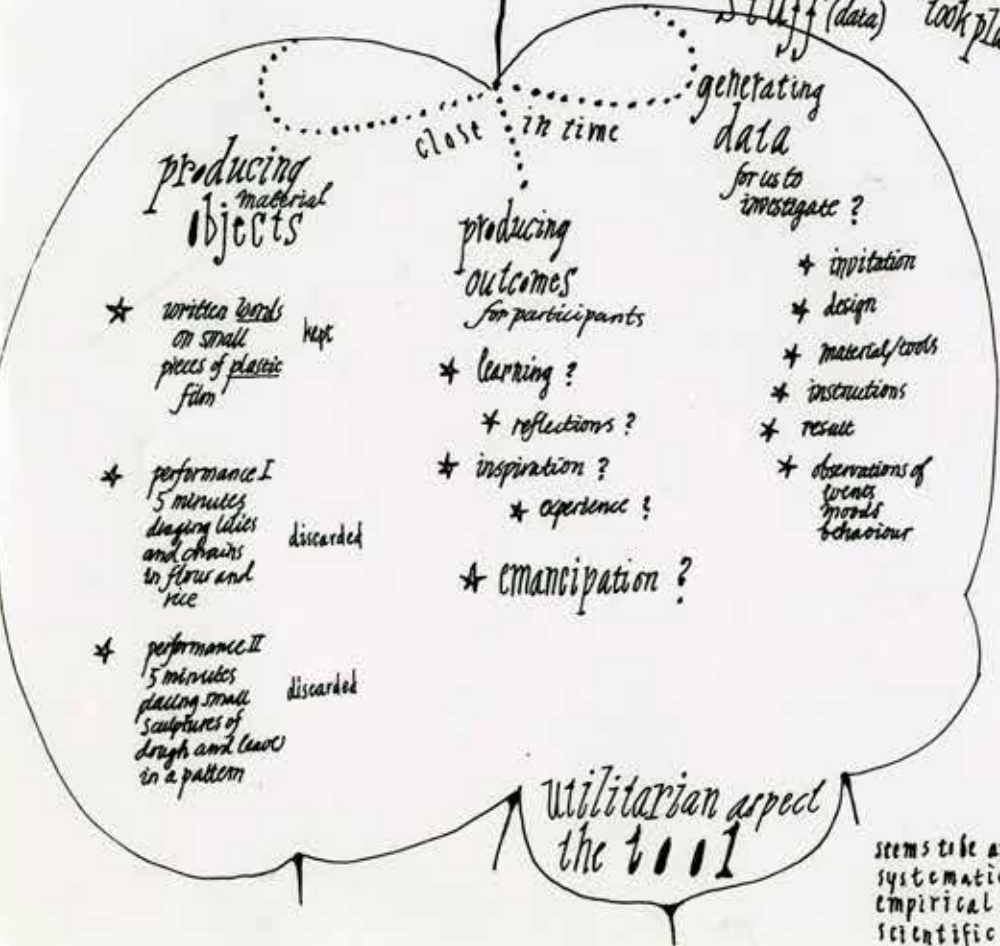 stuff (data) took pla
close in time
producing
material
objects
★ written words
on small
pieces of plastic
film
kept
★ performance I
5 minutes
draging
and chains
in flour and
rice
discarded
★ performance II
5 minutes
placing small
sculptures of
dough and leaves
in a pattern
discarded
producing
outcomes
for participants
★ learning ?
★ reflections ?
★ inspiration ?
★ experience ?
★ emancipation ?
generating
data
for us to
investigate ?
★ invitation
★ design
★ material/tools
★ instructions
★ result
★ observations of
events
moods
behaviour
utilitarian aspect
the tool
seems to be a
systematic
empirical
scientific